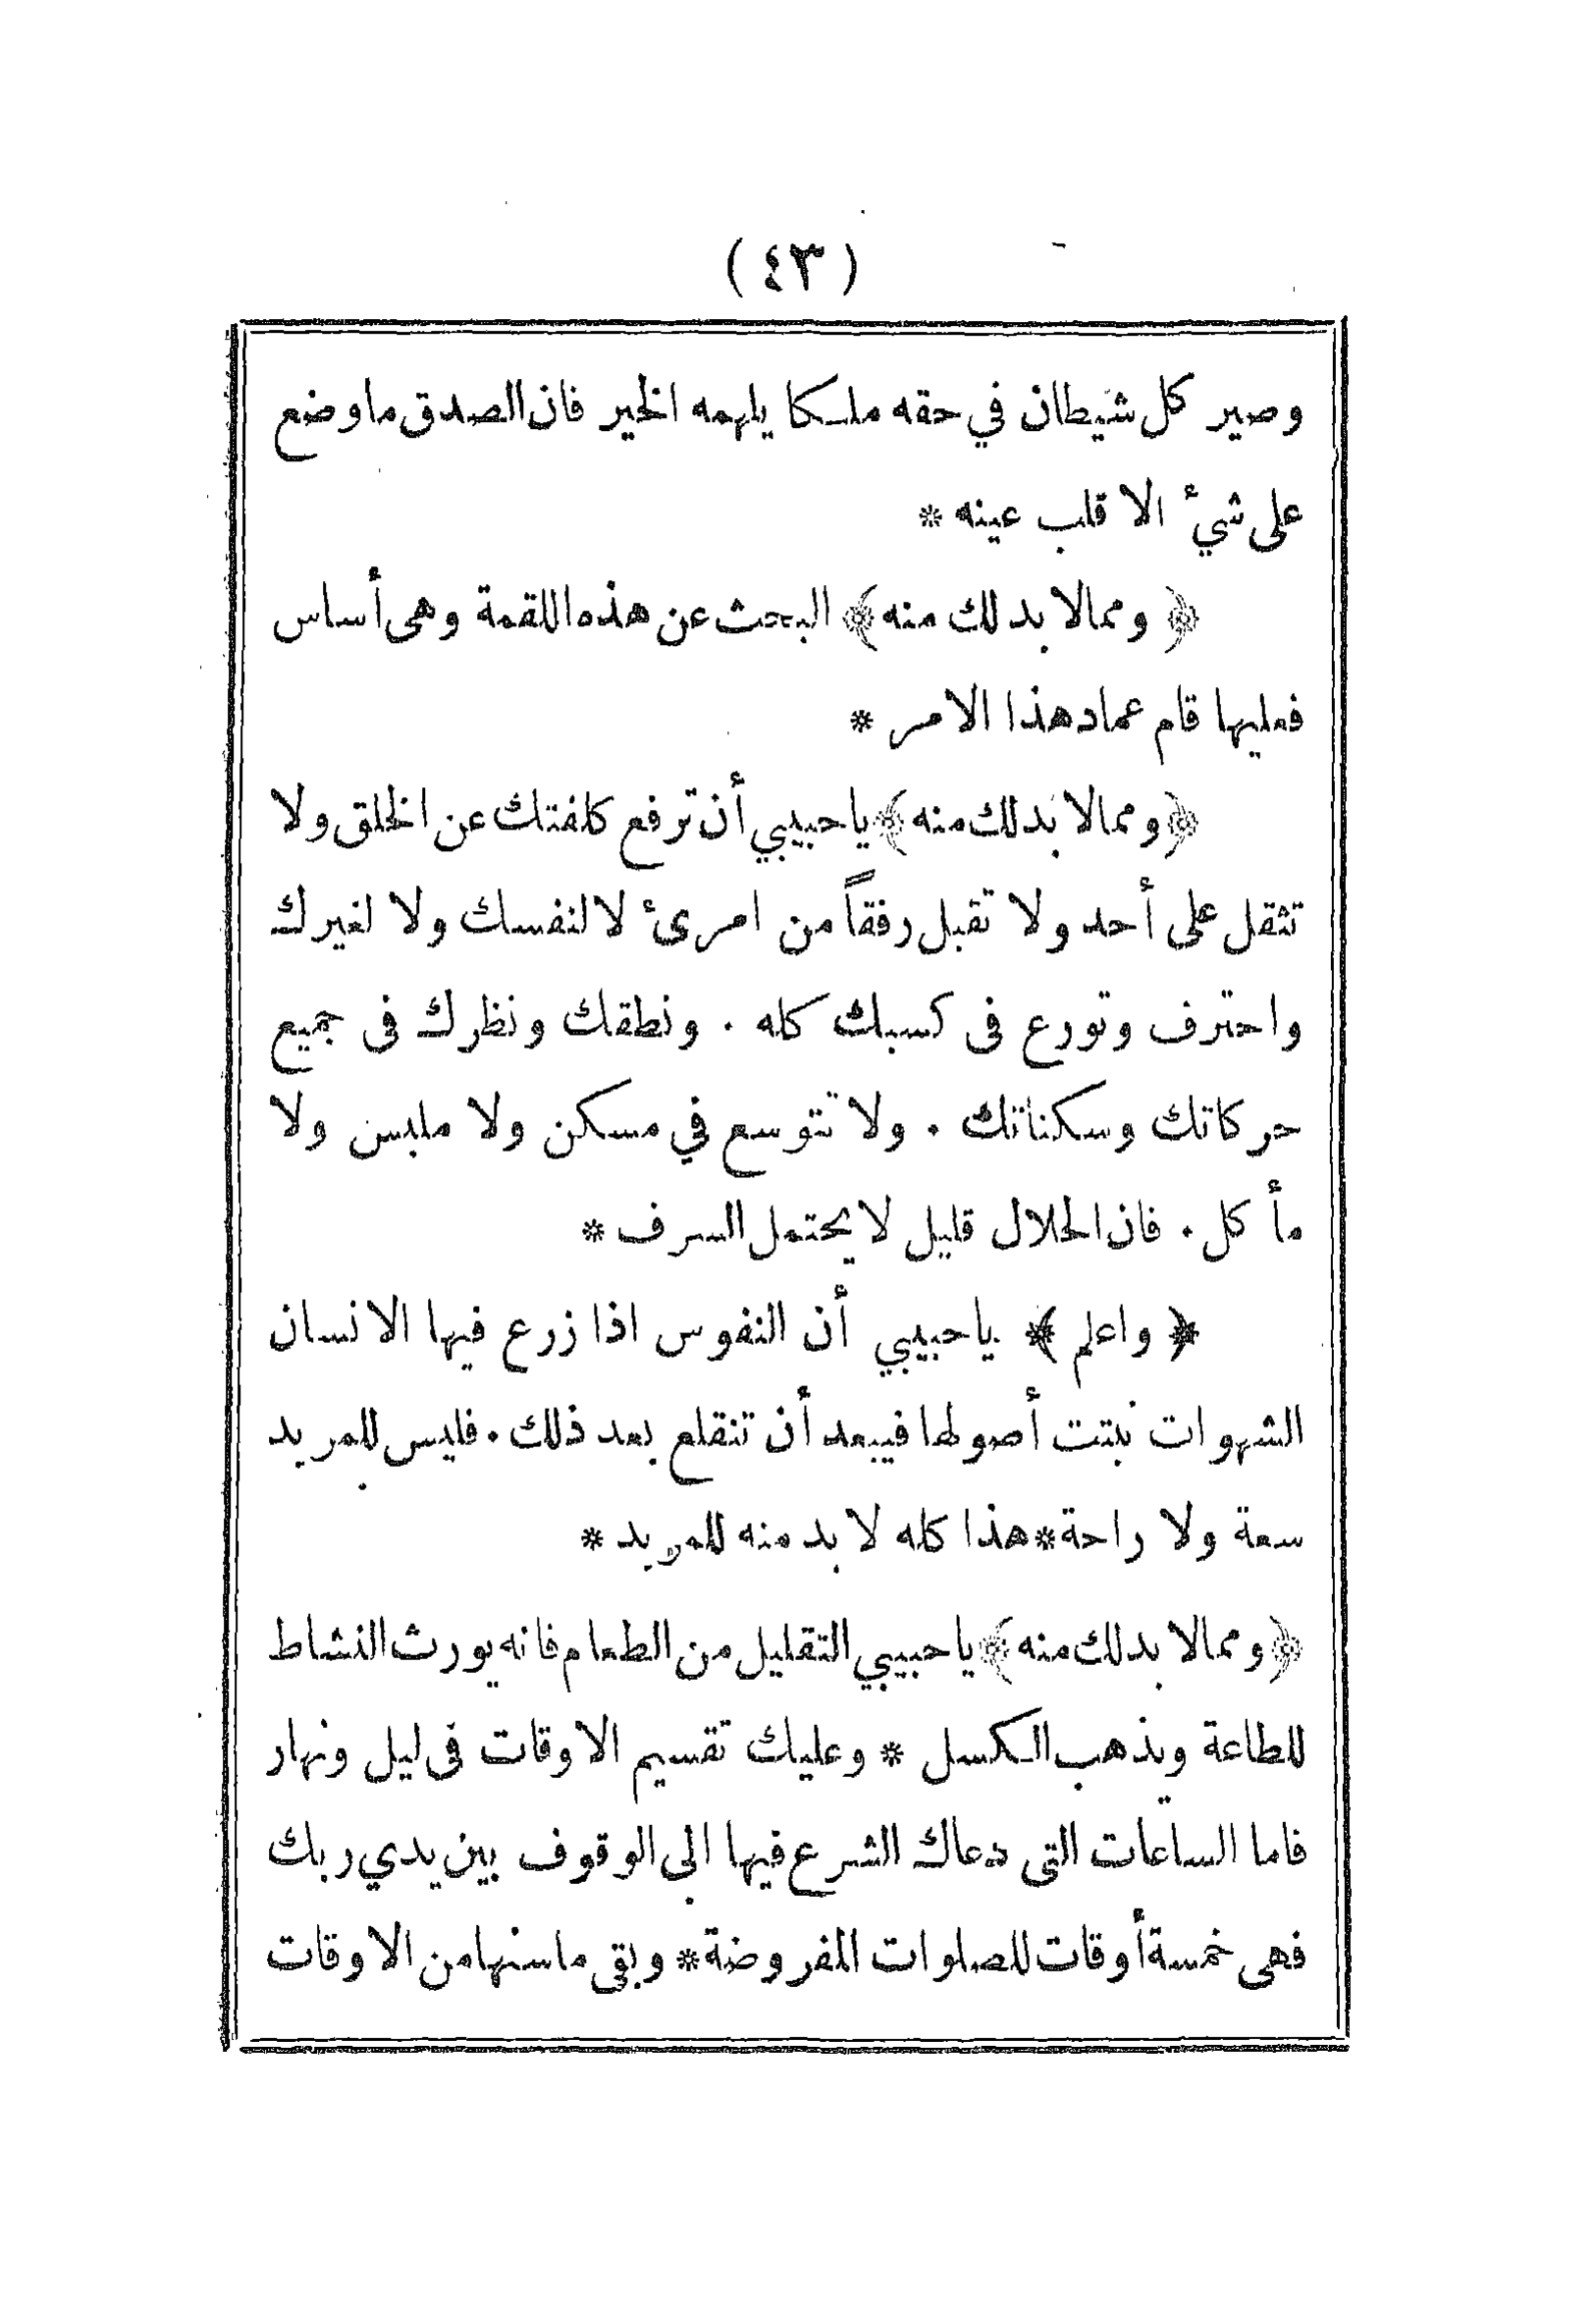 ( ٤٣ )
وصير كل شيطان في حقه ملكا يلهمه الخير فان الصدق ما وضع
على شيء الا قلب عينه *
﴿ ومما لا بد لك منه ﴾ البحث عن هذه اللقمة وهى أساس
فعليها قام عماد هذا الامر *
﴿ ومما لا بد لك منه ﴾ يا حبيبي أن ترفع كلفتك عن الخلق ولا
تثقل على أحد ولا تقبل رفقاً من امرئ لا لنفسك ولا لغيرك
واحترف وتورع فى كسبك كله . ونطقك ونظرك فى جميع
حركاتك وسكناتك . ولا تتوسع في مسكن ولا ملبس ولا
مأكل . فان الحلال قليل لا يحتمل السرف *
﴿ واعلم ﴾ يا حبيبي أن النفوس اذا زرع فيها الانسان
الشهوات نبتت أصولها فيبعد أن تنقلع بعد ذلك . فليس للمريد
سعة ولا راحة * هذا كله لا بد منه للمريد *
﴿ ومما لا بد لك منه ﴾ يا حبيبي التقليل من الطعام فانه يورث النشاط
للطاعة ويذهب الكسل * وعليك تقسيم الاوقات فى ليل ونهار
فاما الساعات التى دعاك الشرع فيها الى الوقوف بين يدي ربك
فهى خمسة أوقات للصلوات المفروضة * وبقى ما سنها من الاوقات